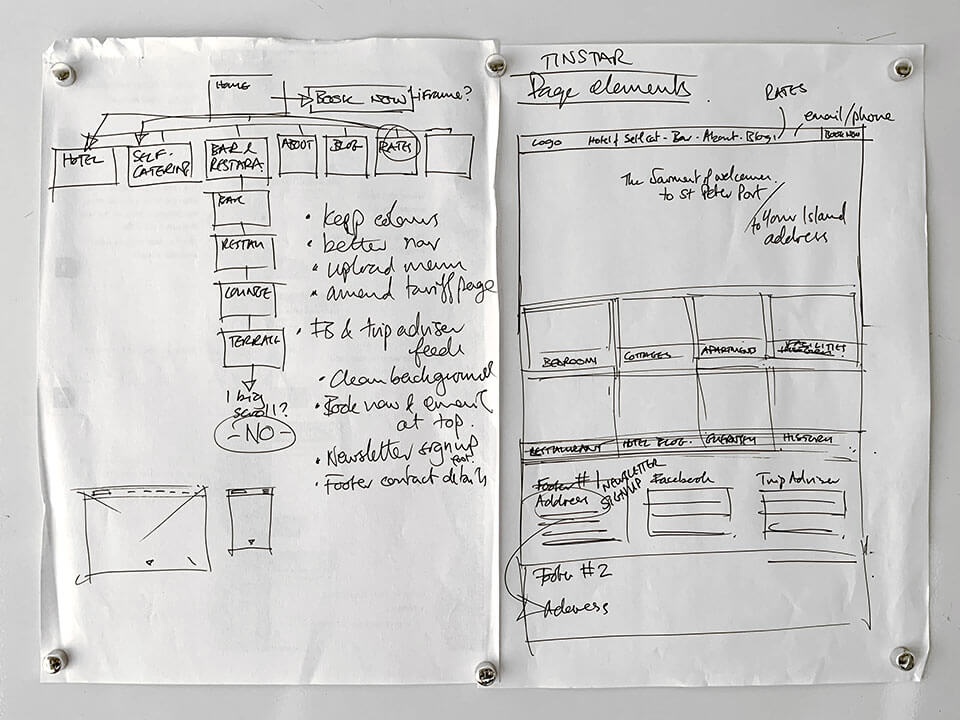 HOME
BOOK NOW iframe?
HOTEL
SELF-
CATERING
BAR &
RESTARA.
ABOUT
BLOG
RATES
BAR
RESTAU
LOUNGE
TERRACE
1 big
scroll?
-NO-
• Keep colours
• better nav
• upload menu
• amend tariff page
• FB & trip adviser
feeds
• Clean background
• Book now & email
at top.
• Newsletter sign up
foot.
• Footer contact details
TINSTAR
Page elements.
RATES
email/phone
Logo Hotel & Self cat - Bar - About - Blog
BOOK NOW
The warmest of welcomes
to St Peter Port
to Your Island
address
BEDROOM
COTTAGES
APARTMENT
FACILITIES
RESTAURANT
HOTEL BLOG.
GUERNSEY
HISTORY
Footer #1
NEWSLETTER
SIGNUP
Address
Facebook
Trip Adviser
Footer #2
Address